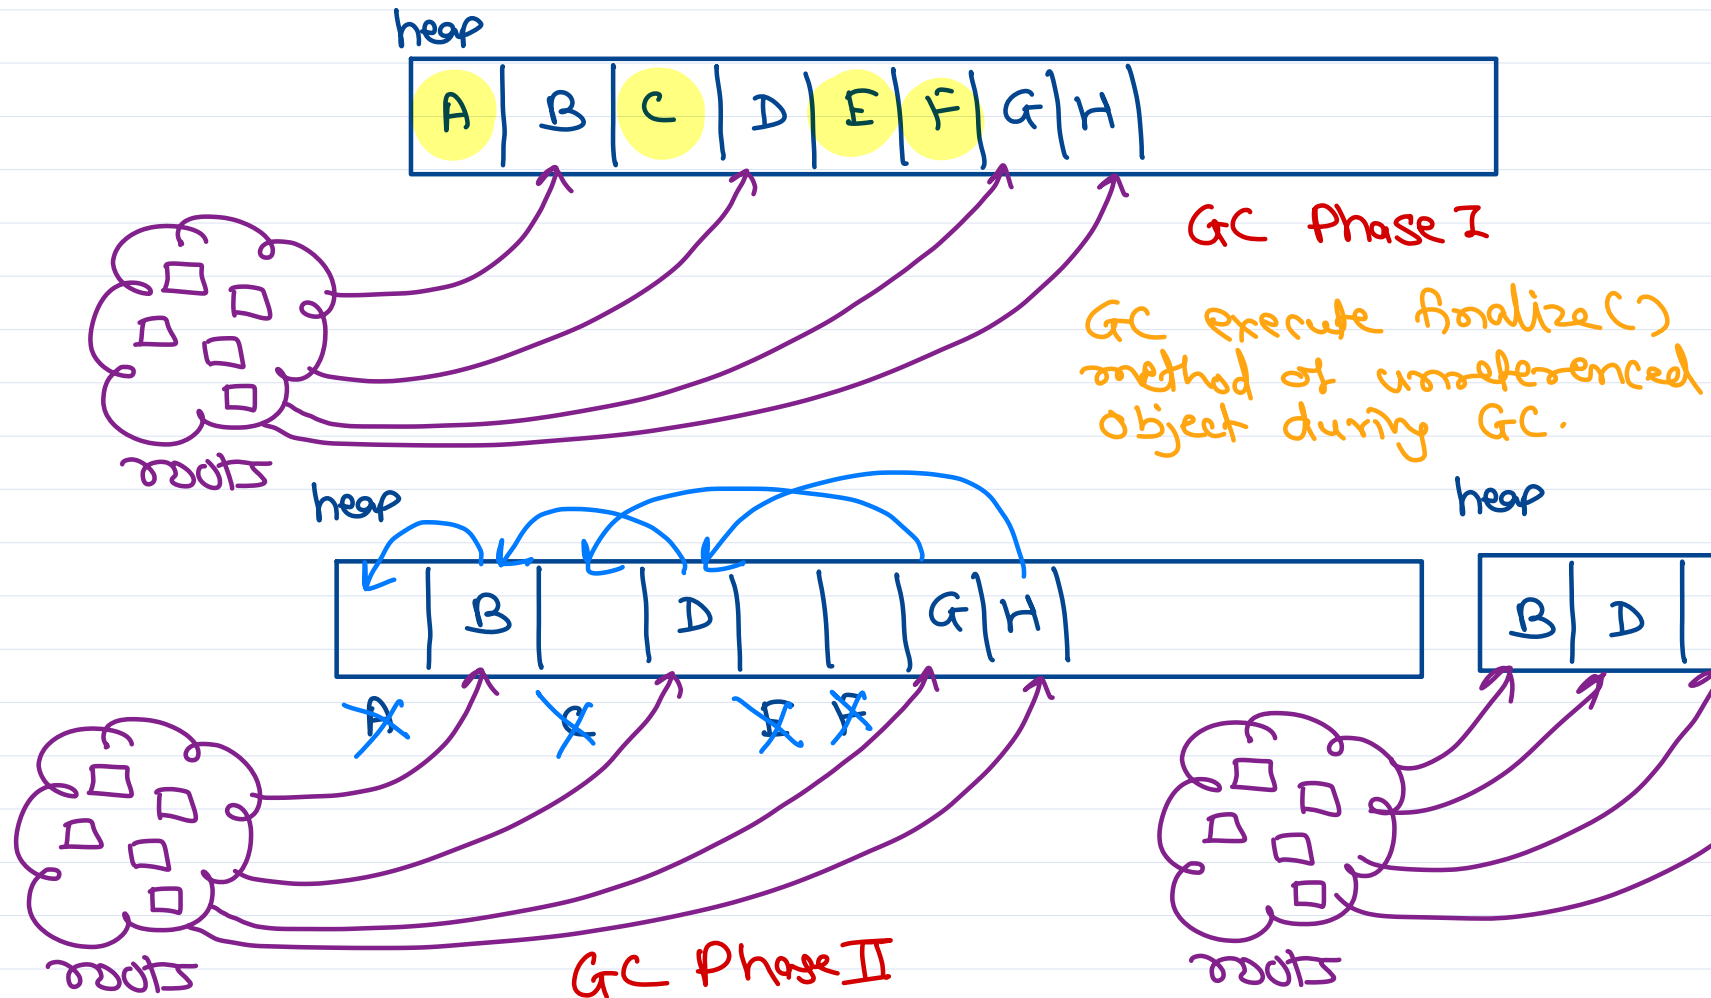 heap
A B C D E F G H
GC Phase I
GC execute finalize()
method of unreferenced
object during GC.
roots
heap
B D G H
A C E F
roots
GC Phase II
heap
B D
roots